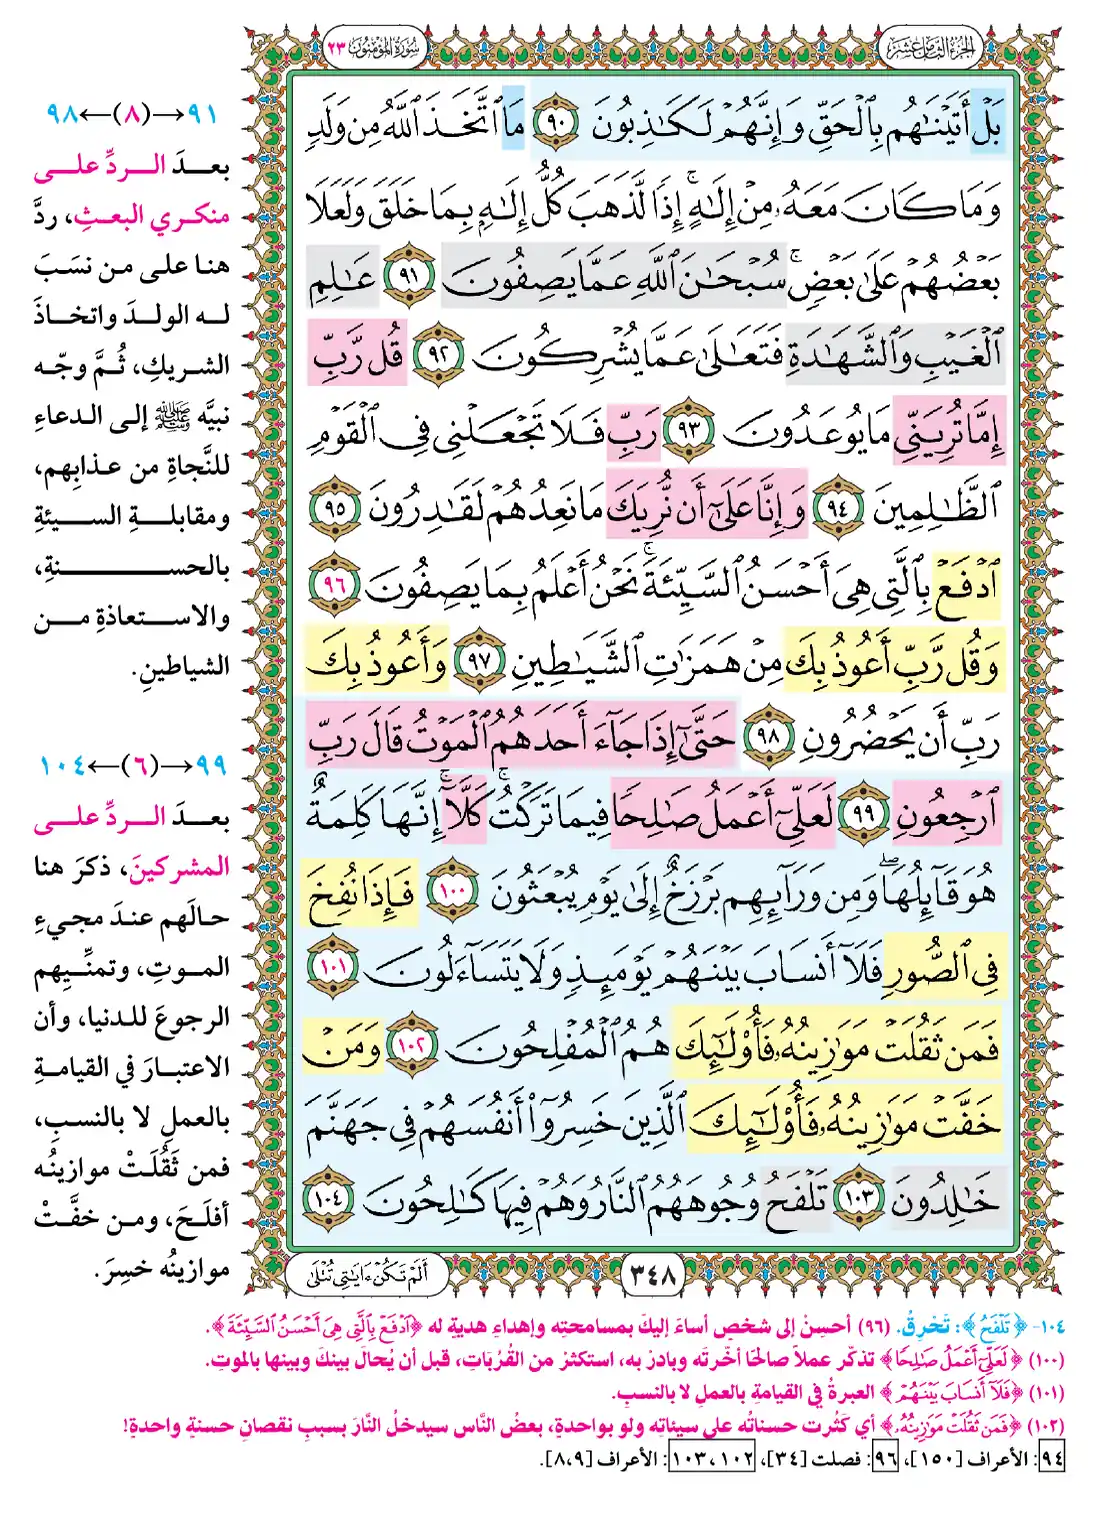 الجزء الثامن عشر
سورة المؤمنون ٢٣
بَلْ أَتَيْنَٰهُم بِٱلْحَقِّ وَإِنَّهُمْ لَكَٰذِبُونَ ٩٠ مَا ٱتَّخَذَ ٱللَّهُ مِن وَلَدٍ
وَمَا كَانَ مَعَهُۥ مِنْ إِلَٰهٍ ۚ إِذًا لَّذَهَبَ كُلُّ إِلَٰهٍۭ بِمَا خَلَقَ وَلَعَلَا
بَعْضُهُمْ عَلَىٰ بَعْضٍ ۚ سُبْحَٰنَ ٱللَّهِ عَمَّا يَصِفُونَ ٩١ عَٰلِمِ
ٱلْغَيْبِ وَٱلشَّهَٰدَةِ فَتَعَٰلَىٰ عَمَّا يُشْرِكُونَ ٩٢ قُل رَّبِّ
إِمَّا تُرِيَنِّى مَا يُوعَدُونَ ٩٣ رَبِّ فَلَا تَجْعَلْنِى فِى ٱلْقَوْمِ
ٱلظَّٰلِمِينَ ٩٤ وَإِنَّا عَلَىٰٓ أَن نُّرِيَكَ مَا نَعِدُهُمْ لَقَٰدِرُونَ ٩٥
ٱدْفَعْ بِٱلَّتِى هِىَ أَحْسَنُ ٱلسَّيِّئَةَ ۚ نَحْنُ أَعْلَمُ بِمَا يَصِفُونَ ٩٦
وَقُل رَّبِّ أَعُوذُ بِكَ مِنْ هَمَزَٰتِ ٱلشَّيَٰطِينِ ٩٧ وَأَعُوذُ بِكَ
رَبِّ أَن يَحْضُرُونِ ٩٨ حَتَّىٰٓ إِذَا جَآءَ أَحَدَهُمُ ٱلْمَوْتُ قَالَ رَبِّ
ٱرْجِعُونِ ٩٩ لَعَلِّىٓ أَعْمَلُ صَٰلِحًا فِيمَا تَرَكْتُ ۚ كَلَّآ ۚ إِنَّهَا كَلِمَةٌ
هُوَ قَآئِلُهَا ۖ وَمِن وَرَآئِهِم بَرْزَخٌ إِلَىٰ يَوْمِ يُبْعَثُونَ ١٠٠ فَإِذَا نُفِخَ
فِى ٱلصُّورِ فَلَآ أَنسَابَ بَيْنَهُمْ يَوْمَئِذٍ وَلَا يَتَسَآءَلُونَ ١٠١
فَمَن ثَقُلَتْ مَوَٰزِينُهُۥ فَأُو۟لَٰٓئِكَ هُمُ ٱلْمُفْلِحُونَ ١٠٢ وَمَنْ
خَفَّتْ مَوَٰزِينُهُۥ فَأُو۟لَٰٓئِكَ ٱلَّذِينَ خَسِرُوٓا۟ أَنفُسَهُمْ فِى جَهَنَّمَ
خَٰلِدُونَ ١٠٣ تَلْفَحُ وُجُوهَهُمُ ٱلنَّارُ وَهُمْ فِيهَا كَٰلِحُونَ ١٠٤
٣٤٨
أَلَمْ تَكُنْ ءَايَٰتِى تُتْلَىٰ
٩١→(٨)←٩٨
بعدَ الردِّ على
منكري البعثِ، ردَّ
هنا على من نسَبَ
له الولدَ واتخاذَ
الشريكِ، ثُمَّ وجّه
نبيَّه ﷺ إلى الدعاءِ
للنَّجاةِ من عذابِهم،
ومقابلةِ السيئةِ
بالحسنةِ،
والاستعاذةِ من
الشياطينِ.
٩٩→(٦)←١٠٤
بعدَ الردِّ على
المشركينَ، ذكرَ هنا
حالَهم عندَ مجيءِ
الموتِ، وتمنِّيهم
الرجوعَ للدنيا، وأن
الاعتبارَ في القيامةِ
بالعملِ لا بالنسبِ،
فمن ثَقُلَتْ موازينُه
أفلَحَ، ومن خفَّتْ
موازينُه خسِرَ.
١٠٤- ﴿تَلْفَحُ﴾: تَحْرِقُ. (٩٦) أحسِنْ إلى شخصٍ أساءَ إليكَ بمسامحتِه وإهداءِ هديةٍ له ﴿ٱدْفَعْ بِٱلَّتِى هِىَ أَحْسَنُ ٱلسَّيِّئَةَ﴾.
(١٠٠) ﴿لَعَلِّىٓ أَعْمَلُ صَٰلِحًا﴾ تذكّر عملًا صالحًا أخّرتَه وبادرْ به، استكثرْ من القُرُبَاتِ، قبل أن يُحالَ بينكَ وبينها بالموتِ.
(١٠١) ﴿فَلَآ أَنسَابَ بَيْنَهُمْ﴾ العبرةُ في القيامةِ بالعملِ لا بالنسبِ.
(١٠٢) ﴿فَمَن ثَقُلَتْ مَوَٰزِينُهُۥ﴾ أي كَثُرت حسناتُه على سيئاتِه ولو بواحدةٍ، بعضُ النَّاس سيدخلُ النَّارَ بسببِ نقصانِ حسنةٍ واحدةٍ!
٩٤: الأعراف [١٥٠]، ٩٦: فصلت [٣٤]، ١٠٢، ١٠٣: الأعراف [٨،٩].